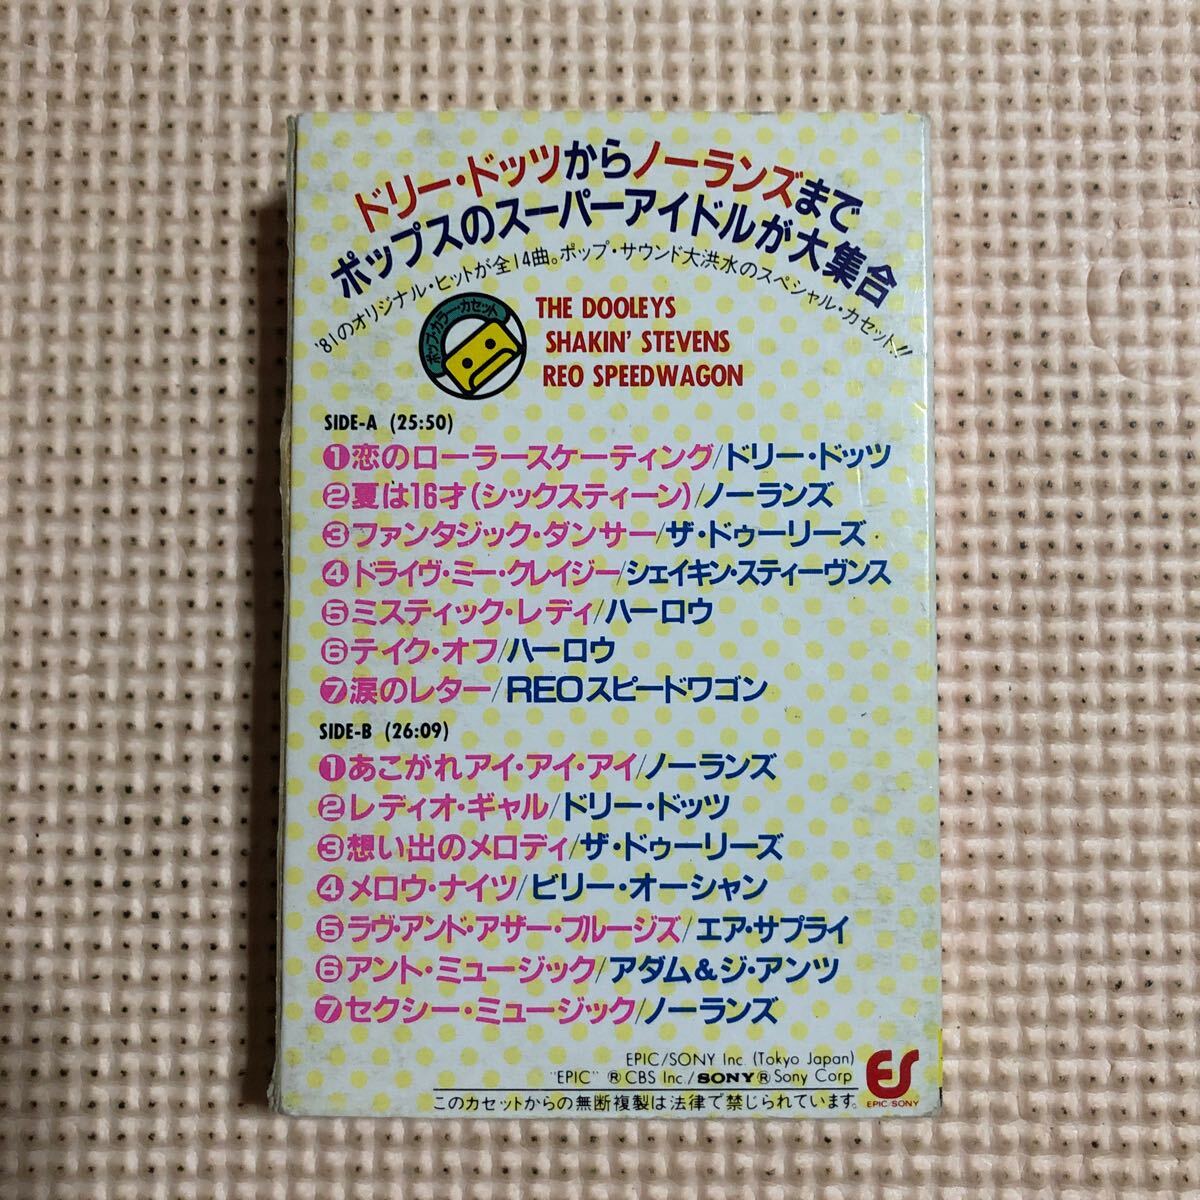 ドリー・ドッツからノーランズまで
ポップスのスーパーアイドルが大集合
'81のオリジナル・ヒットが全14曲。ポップ・サウンド大洪水のスペシャル・カセット!!
ポップ・カラー・カセット
THE DOOLEYS
SHAKIN' STEVENS
REO SPEEDWAGON
SIDE-A (25:50)
❶恋のローラースケーティング/ドリー・ドッツ
②夏は16才(シックスティーン)/ノーランズ
③ファンタジック・ダンサー/ザ・ドゥーリーズ
④ドライヴ・ミー・クレイジー/シェイキン・スティーヴンス
⑤ミスティック・レディ/ハーロウ
⑥テイク・オフ/ハーロウ
❼涙のレター/REOスピードワゴン
SIDE-B (26:09)
❶あこがれアイ・アイ・アイ/ノーランズ
②レディオ・ギャル/ドリー・ドッツ
③想い出のメロディ/ザ・ドゥーリーズ
④メロウ・ナイツ/ビリー・オーシャン
⑤ラヴ・アンド・アザー・ブルージズ/エア・サプライ
⑥アント・ミュージック/アダム&ジ・アンツ
❼セクシー・ミュージック/ノーランズ
EPIC/SONY Inc. (Tokyo Japan)
"EPIC" ® CBS Inc./SONY® Sony Corp
このカセットからの無断複製は法律で禁じられています。
ES
EPIC/SONY